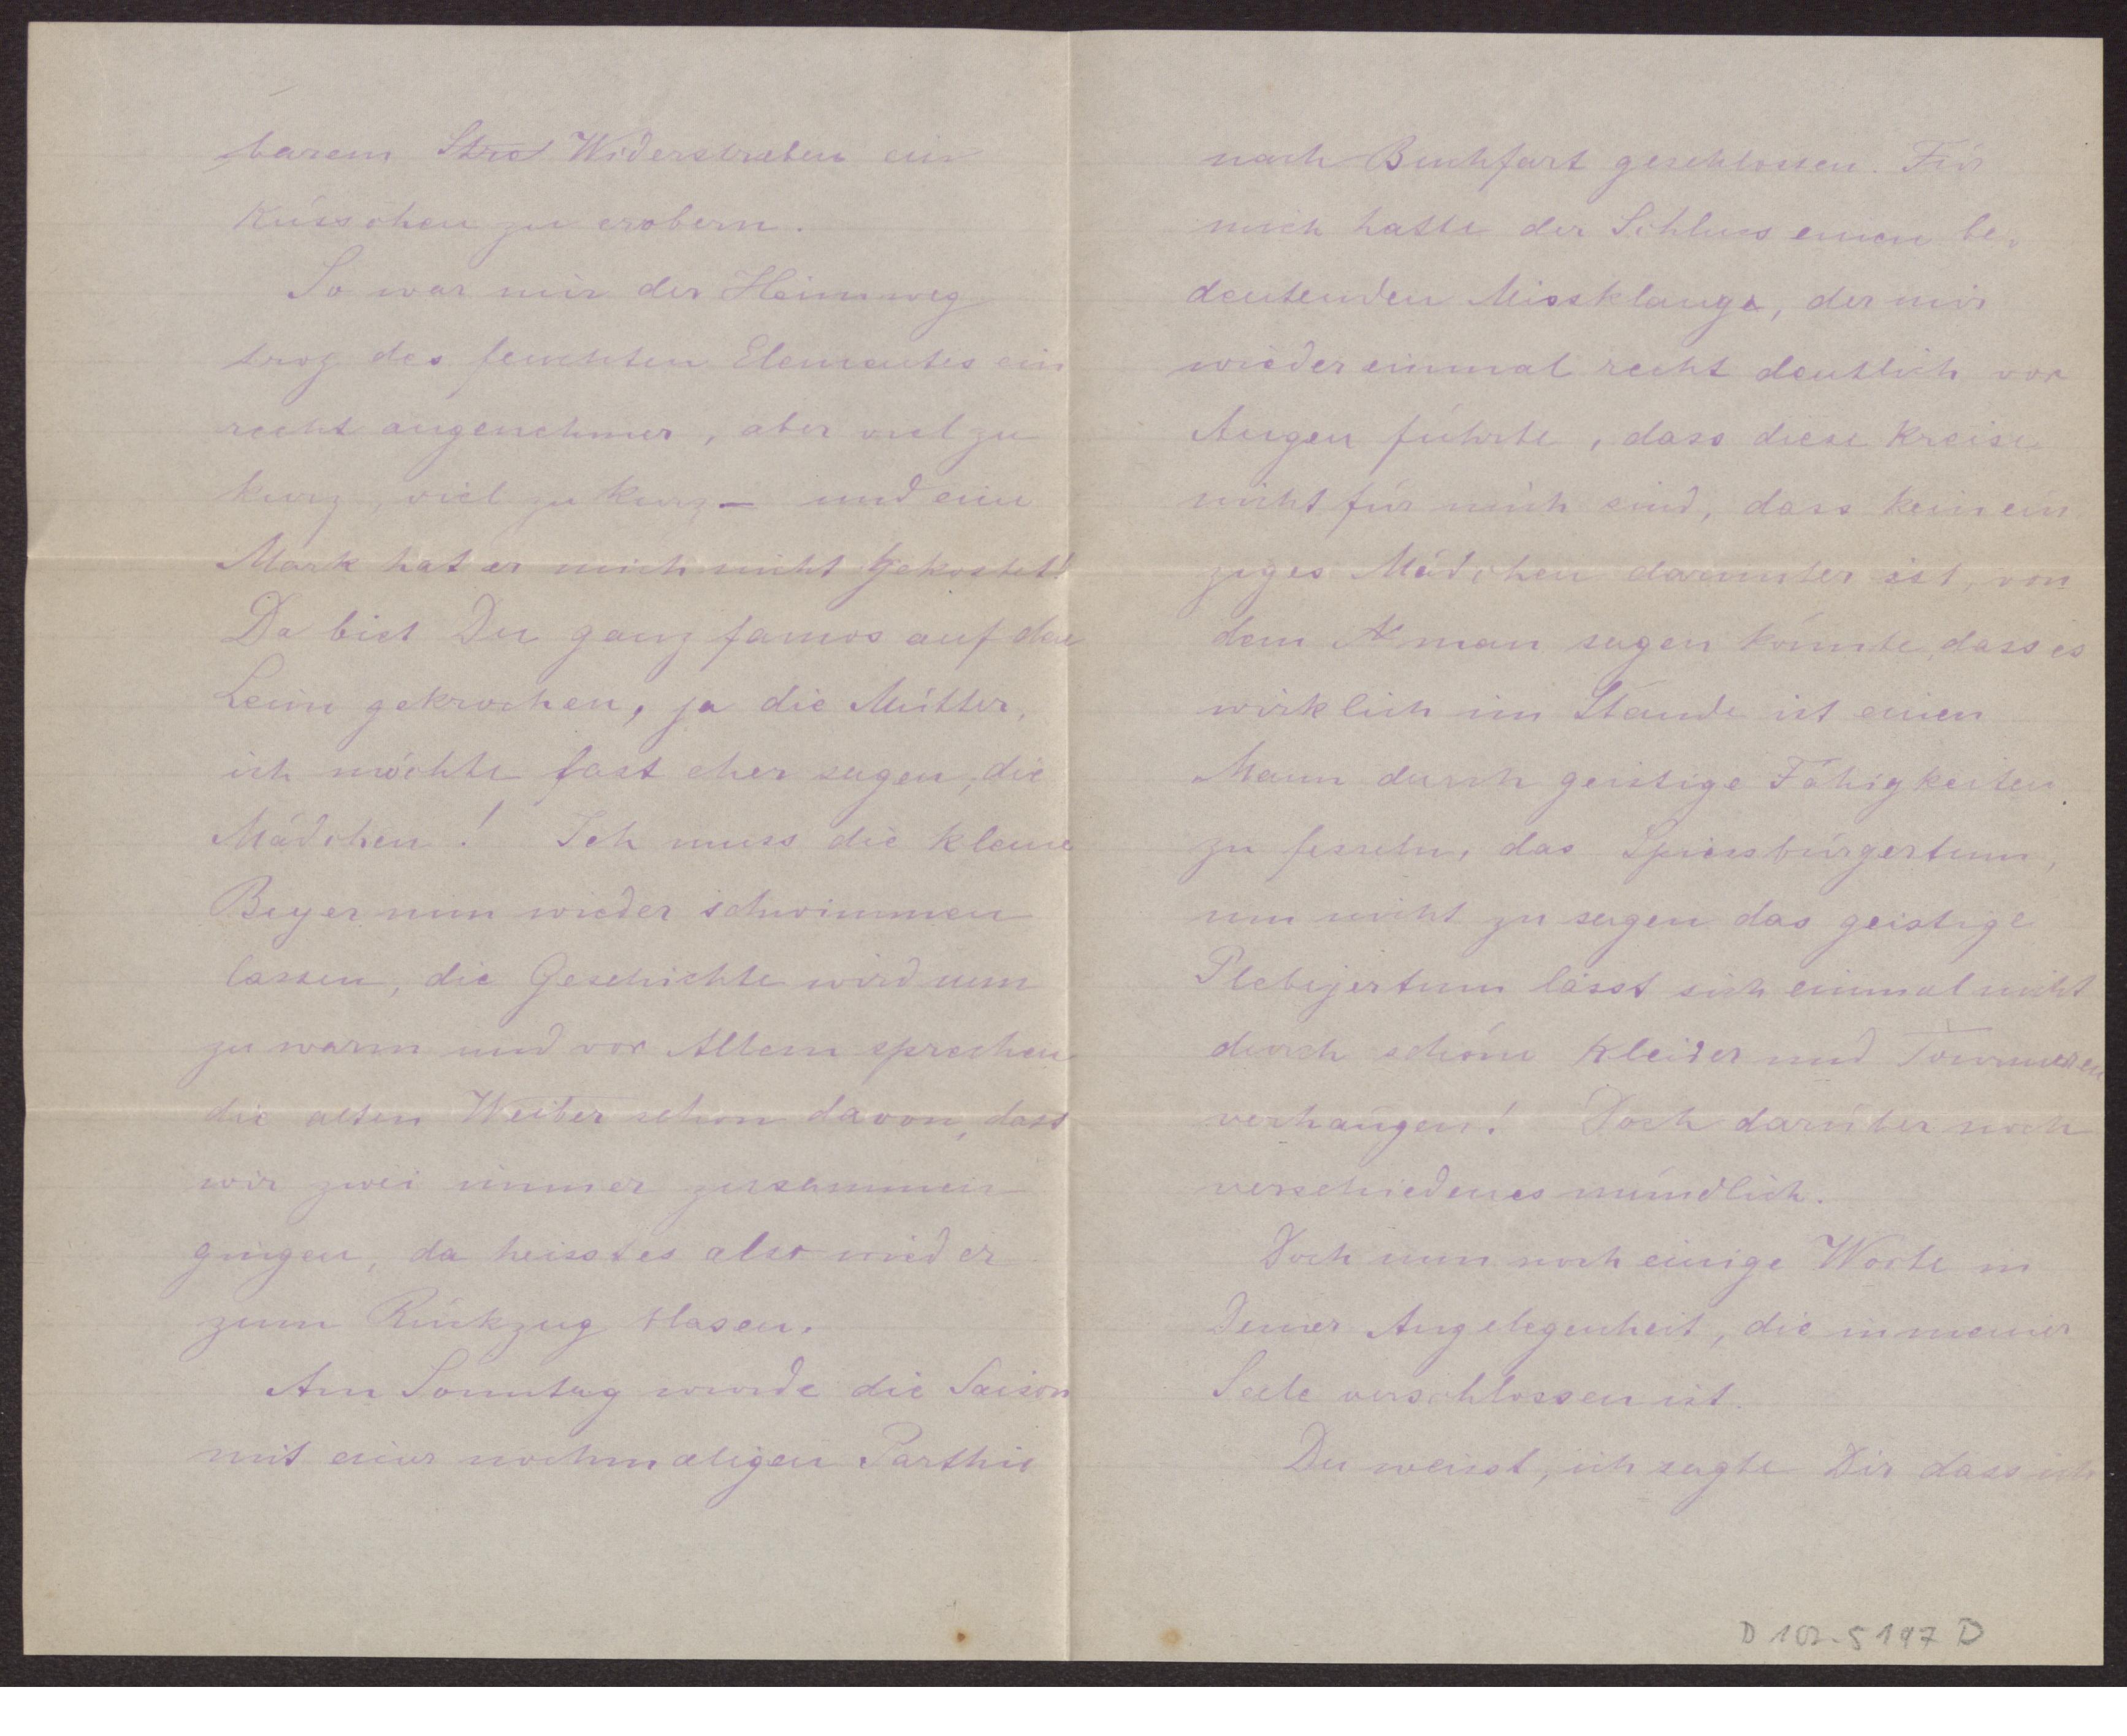 barem Stre Widerstreben ein
Küsschen zu erobern.
So war mir der Heimweg
troz des feuchten Elementes ein
recht angenehmer, aber viel zu
kurz, viel zu kurz – und eine
Mark hat er mich nicht gekostet!
Da bist Du ganz famos auf den
Leim gekrochen, ja die Mütter,
ich möchte fast eher sagen, die
Mädchen! Ich muss die kleine
Beyer nun wieder schwimmen
lassen, die Geschichte wird nun
zu warm und vor Allem sprechen
die alten Weiber schon davon, dass
wir zwei immer zusammen
gingen, da heisst es also wieder
zum Rückzug blasen.
Am Sonntag wurde die Saison
mit einer nochmaligen Parthie
nach Buchfart geschlossen. Für
mich hatte der Schluss einen be-
deutenden Missklange, der mir
wieder einmal recht deutlich vor
Augen führte, dass diese Kreise
nicht für mich sind, dass kein ein
ziges Mädchen darunter ist, von
dem man sagen könnte, dass es
wirklich im Stande ist einen
Mann durch geistige Fähigkeiten
zu fesseln, das Spiessbürgertum,
um nicht zu sagen das geistige
Plebejertum lässt sich einmal nicht
durch schöne Kleider und
verhängen! Doch darüber noch
verschiedenes mündlich.
Doch nun noch einige Worte in
Deiner Angelegenheit, die in meiner
Seele verschlossen ist.
Du weisst, ich sagte Dir dass ich
D 102-5197 D